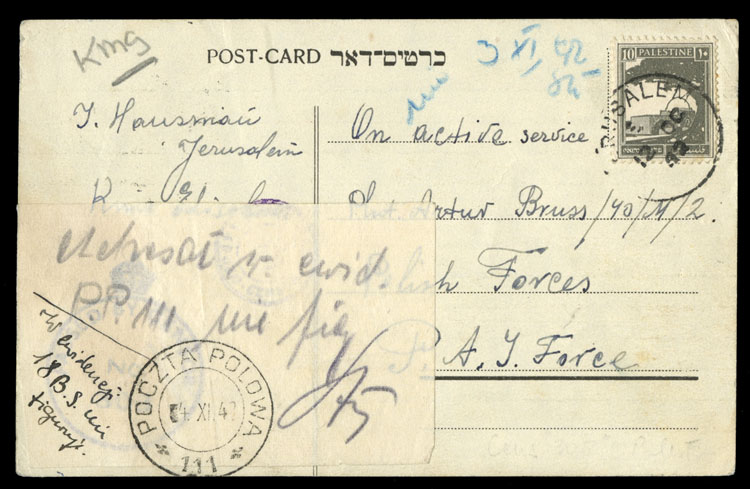 King
POST-CARD כרטיס־דאר
3 XI, 42
10 PALESTINE ١٠
JERUSALEM
12 OC
42
J. Hausmann
Jerusalem
On active service
Artur Bruss /40/M/2.
Polish Forces
P. A. I. Force
Adresat w ewid
P.P. 111 nie fig
W ewidencji
18 B.S. nie
figuruje.
POCZTA POLOWA
04 XI. 42
* 111 *